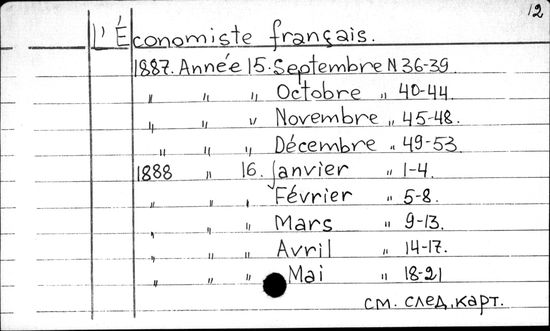 12
L'Économiste français.
1887. Année 15. Septembre N 36-39.
" " " Octobre " 40-44.
" " " Novembre " 45-48.
" " " Décembre " 49-53.
1888 " 16. Janvier " 1-4.
" " " Février " 5-8.
" " " Mars " 9-13.
" " " Avril " 14-17.
" " " Mai " 18-21
см. след. карт.